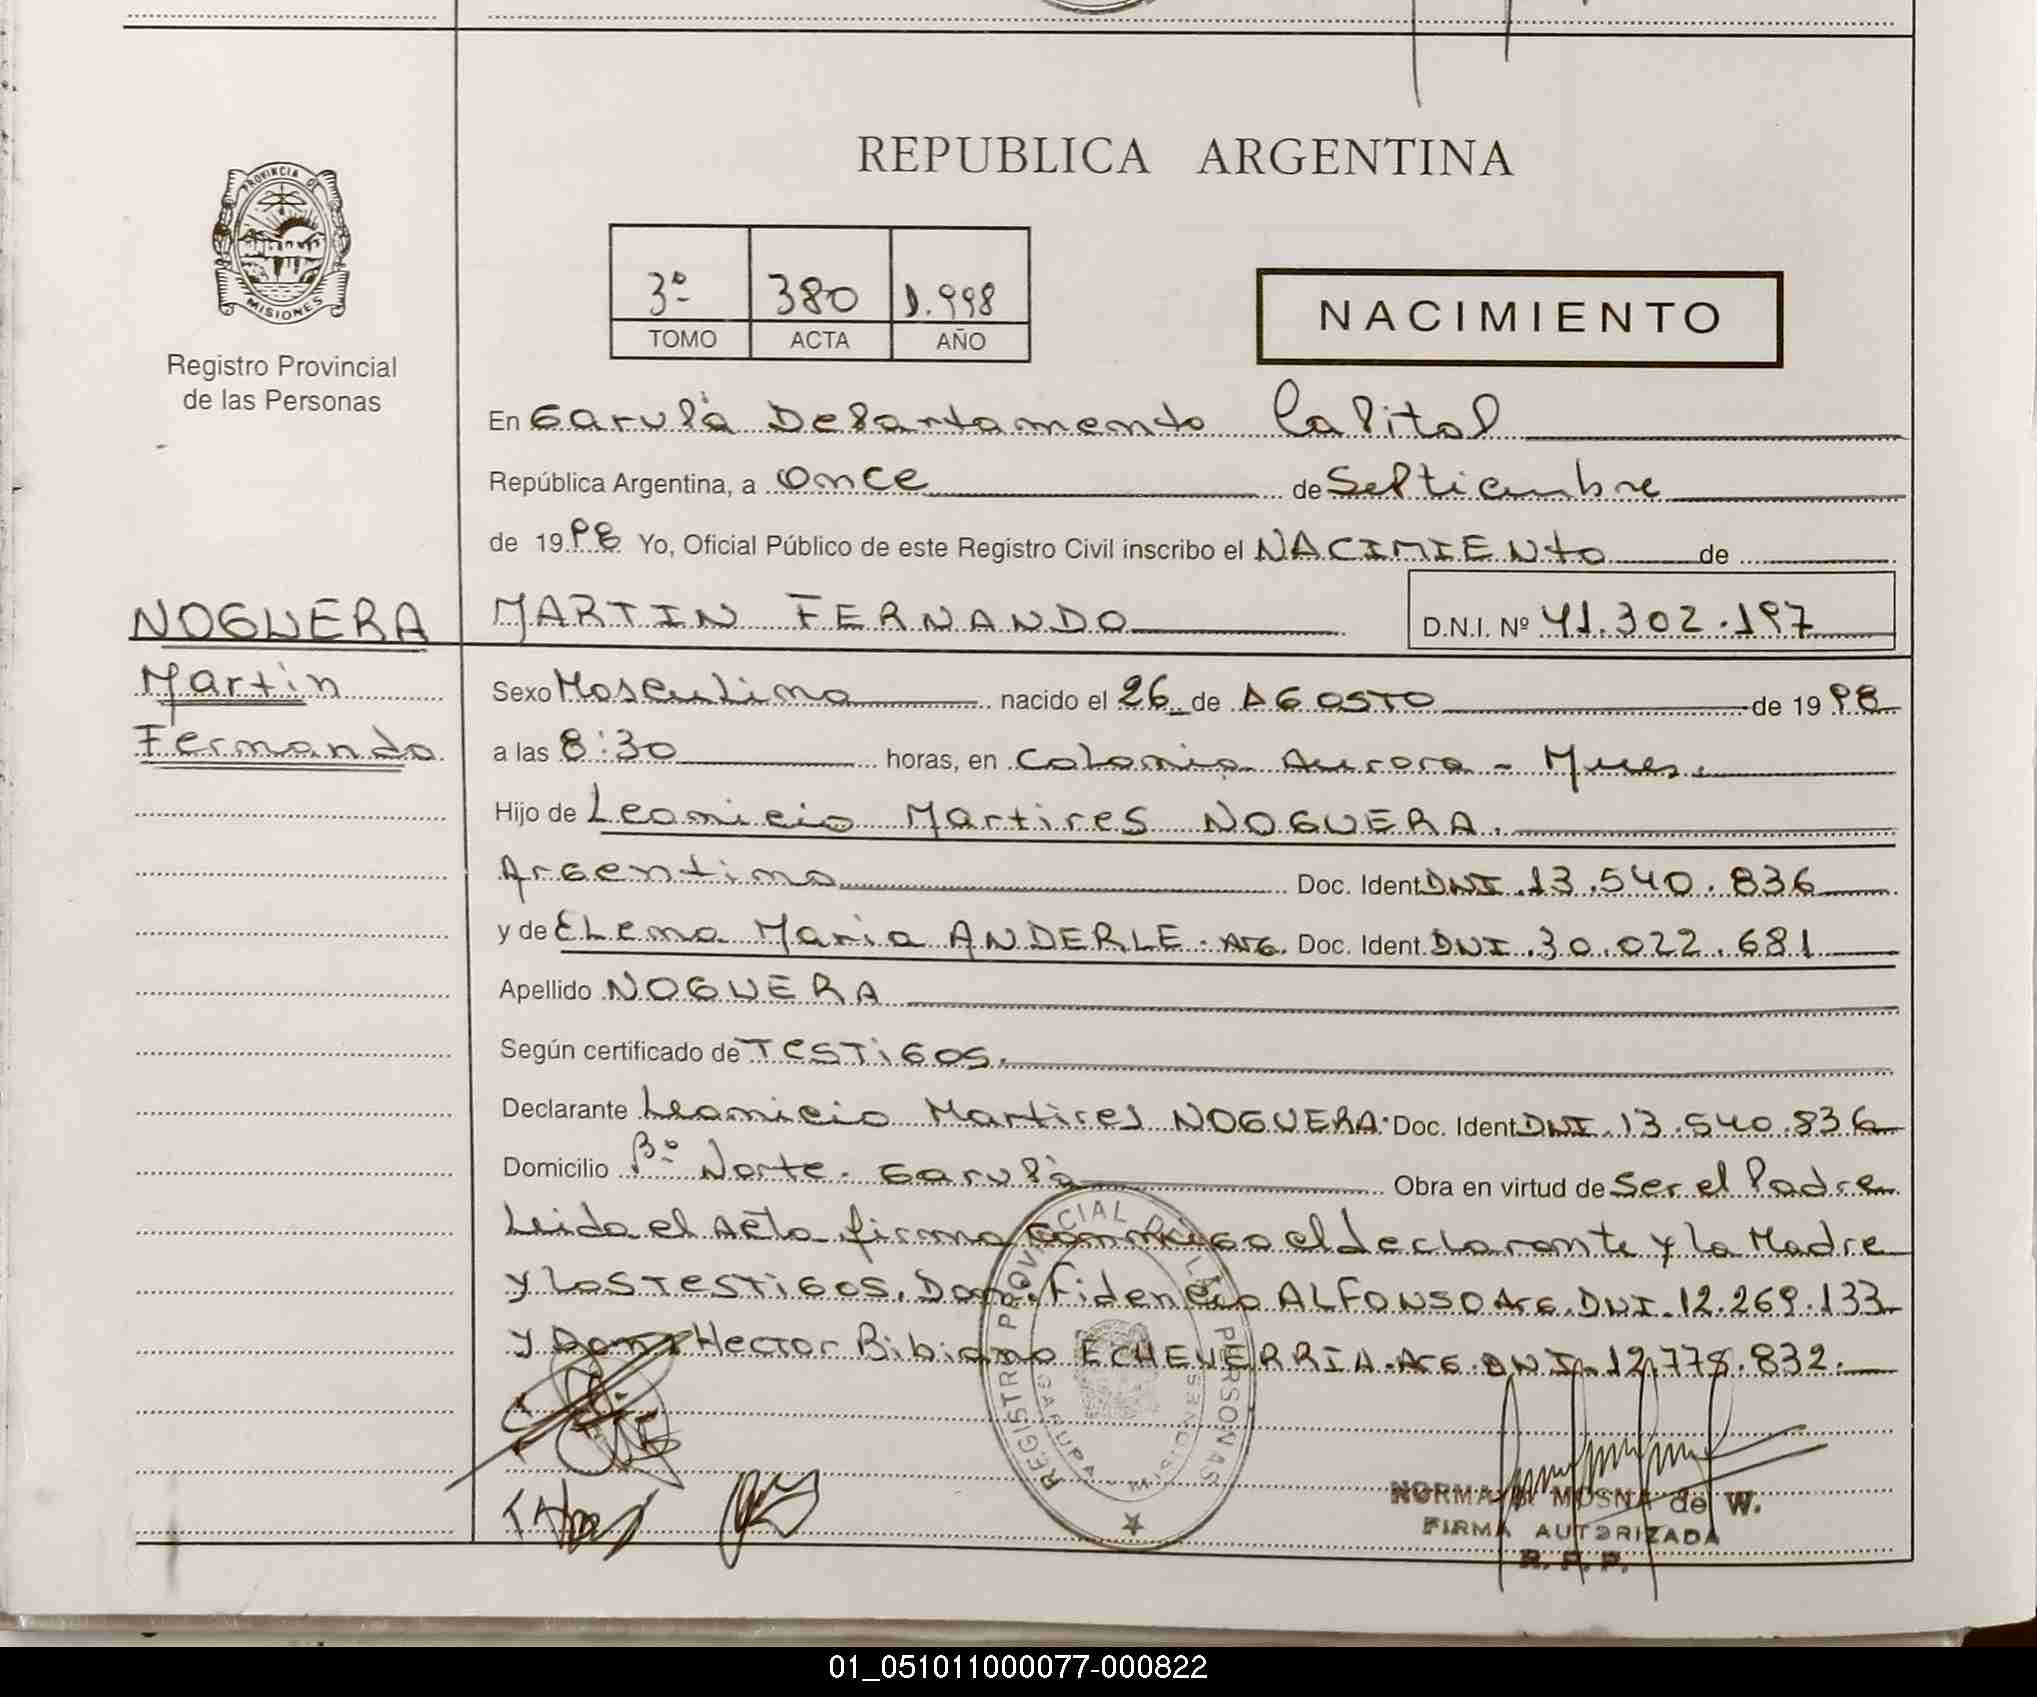 REPUBLICA ARGENTINA
PROVINCIA DE
MISIONES
Registro Provincial
de las Personas
3º 380 1.998
TOMO ACTA AÑO
NACIMIENTO
En Garupá Departamento Capital
República Argentina, a once de Septiembre
de 1998 Yo, Oficial Público de este Registro Civil inscribo el NACIMIENto de
NOGUERA MARTIN FERNANDO D.N.I. Nº 41.302.197
Martin
Fernando
Sexo Masculino nacido el 26 de AGOSTO de 1998
a las 8:30 horas, en Colonia Aurora - Mnes.
Hijo de Leonicio Martires NOGUERA.
Argentino Doc. Ident. DNI.13.540.836
y de Elena Maria ANDERLE. ARG. Doc. Ident. DNI.30.022.681
Apellido NOGUERA
Según certificado de TESTiGOS.
Declarante Leonicio Martires NOGUERA. Doc. Ident. DNI.13.540.836
Domicilio Bº Norte. Garupá Obra en virtud de Ser el Padre
Leida el Acta firma conmigo el declarante y la Madre
y los TESTiGOS. Don. Fidencio ALFONSO ARG. DNI.12.269.133
y Don Hector Bibiano ECHEVERRIA. ARG. DNI.12.778.832.
REGISTRO PROVINCIAL DE LAS PERSONAS
GARUPA
MISIONES
NORMA B. MOSNA de W.
FIRMA AUTORIZADA
R. P. P.
01_051011000077-000822